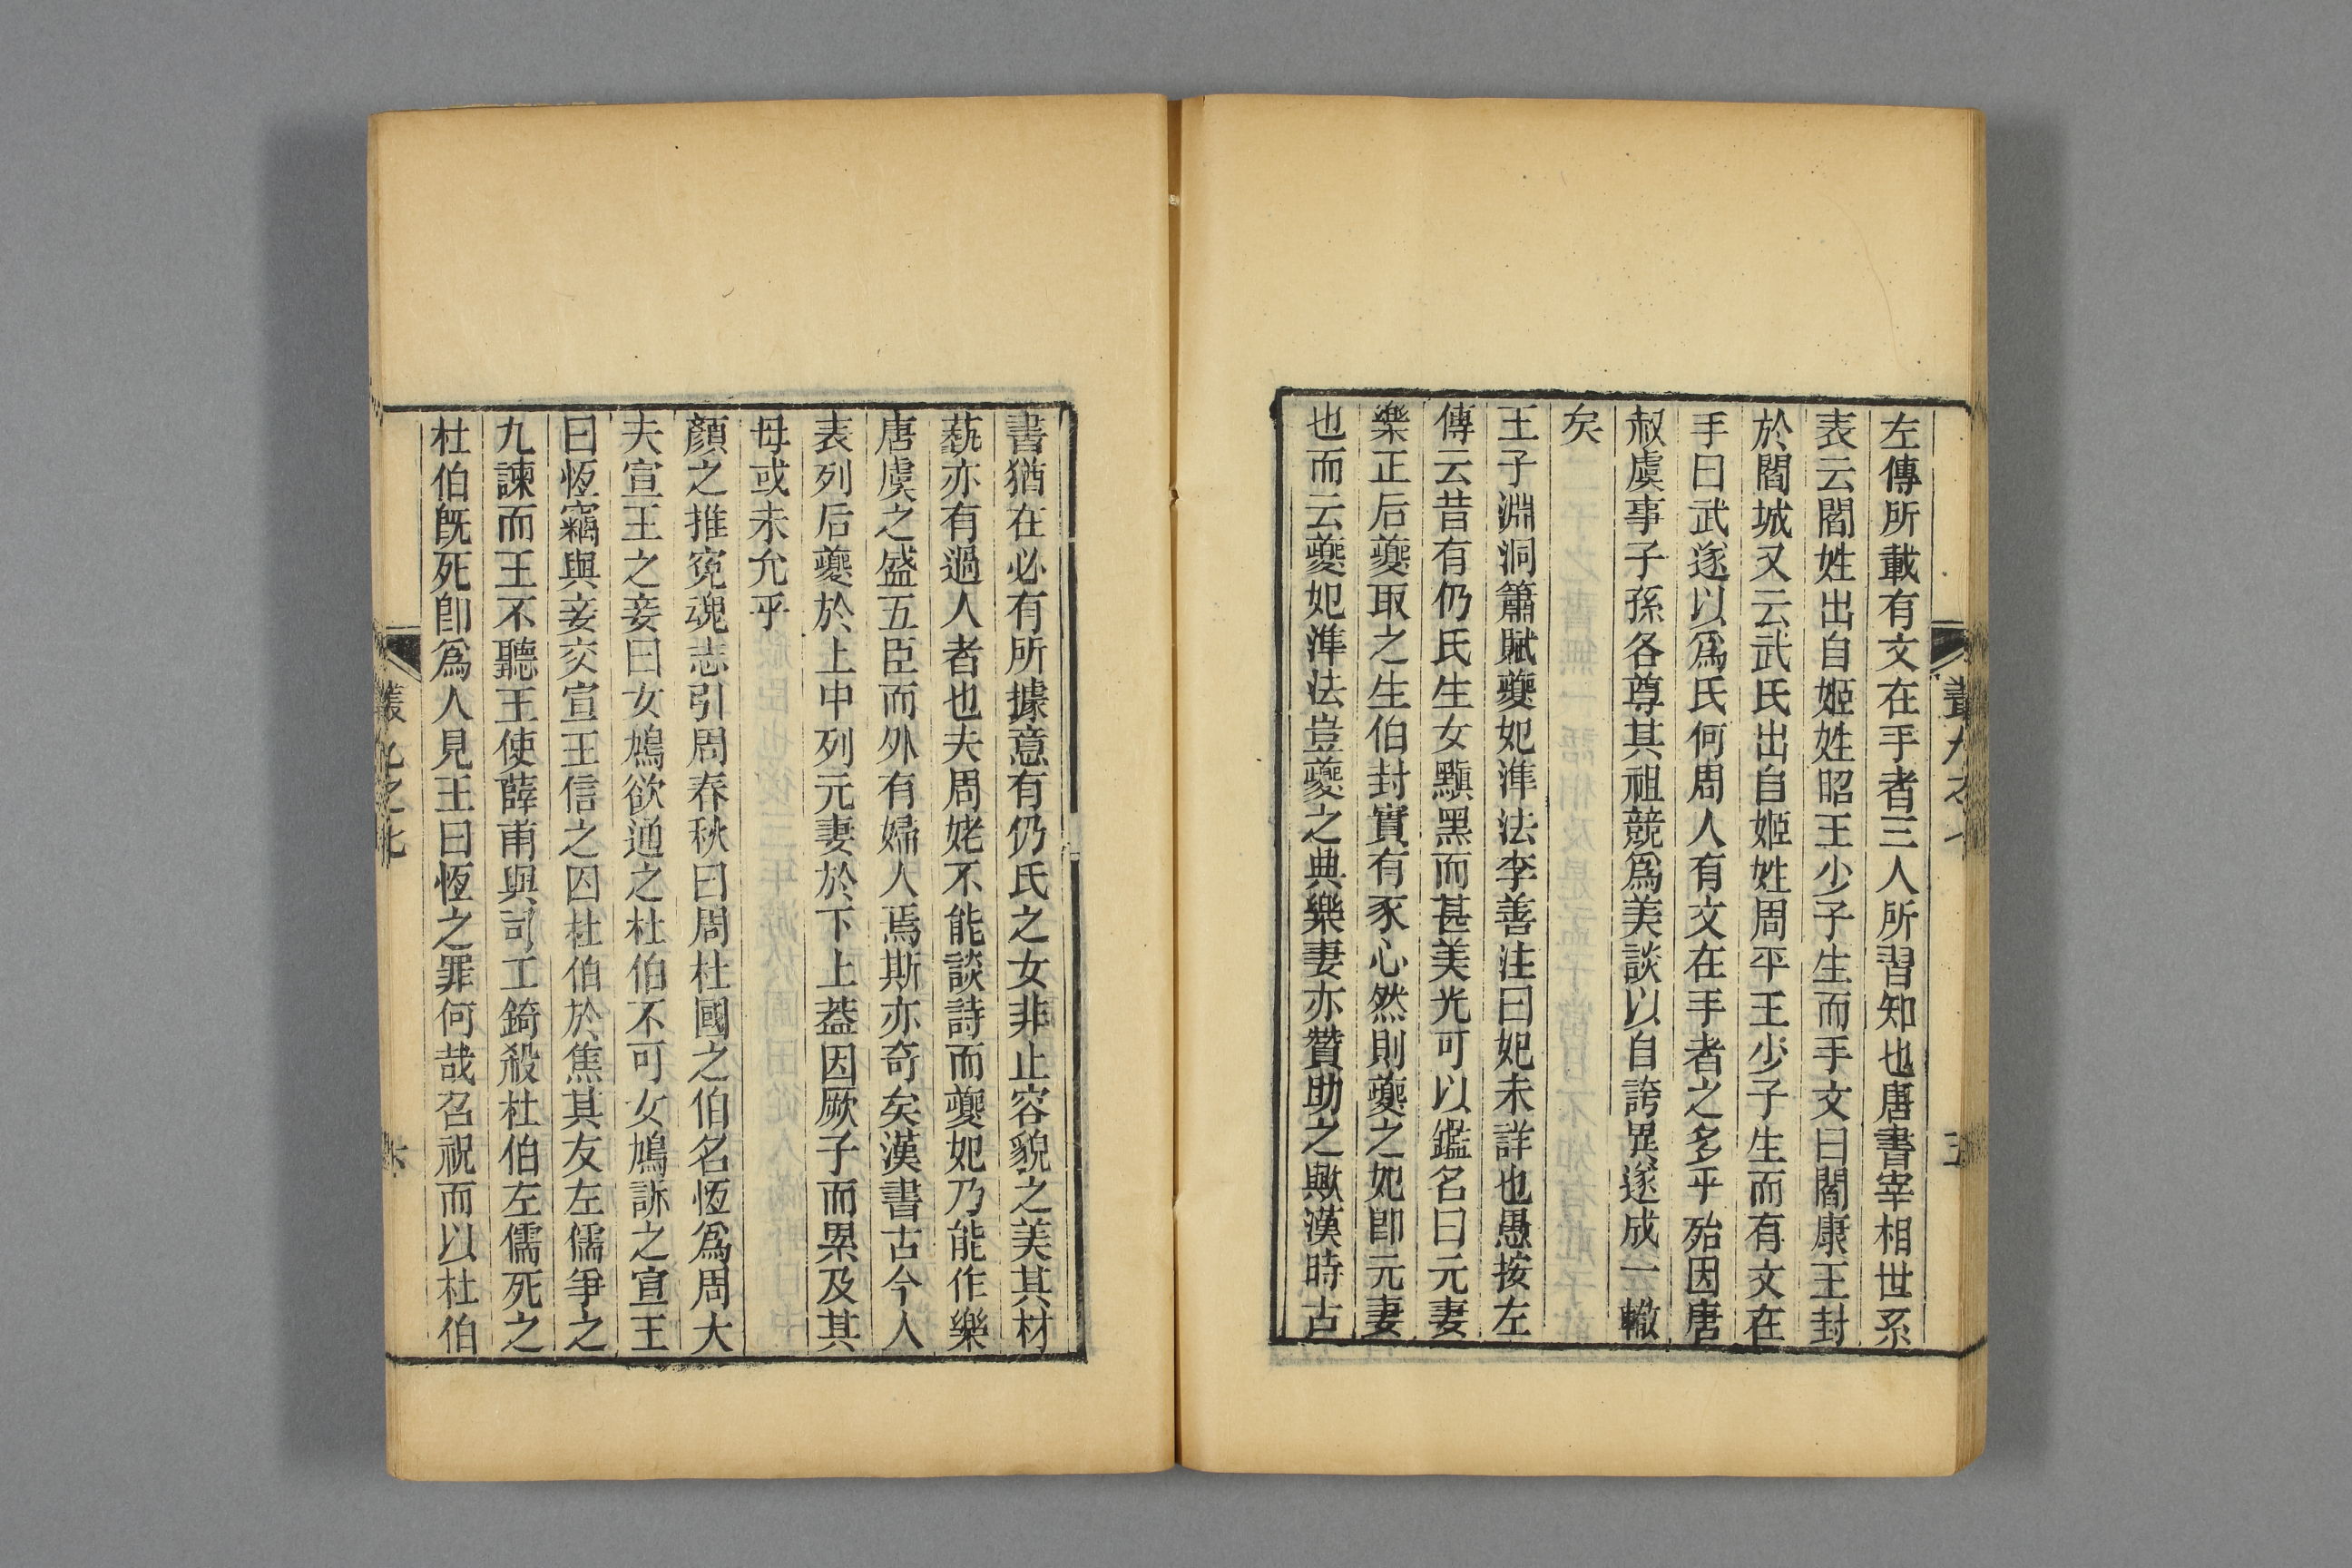 左傳所載有文在手者三人所習知也唐書宰相世系
表云閻姓出自姬姓昭王少子生而手文曰閻康王封
於閻城又云武氏出自姬姓周平王少子生而有文在
手曰武遂以爲氏何周人有文在手者之多乎殆因唐
叔虞事子孫各尊其祖競爲美談以自誇異遂成一轍
矣
王子淵洞簫賦夔妃準法李善注曰妃未詳也愚按左
傳云昔有仍氏生女黰黑而甚美光可以鑑名曰元妻
樂正后夔取之生伯封實有豕心然則夔之妃卽元妻
也而云夔妃準法豈夔之典樂妻亦贊助之歟漢時古
書猶在必有所據意有仍氏之女非止容貌之美其材
蓺亦有過人者也夫周姥不能談詩而夔妃乃能作樂
唐虞之盛五臣而外有婦人焉斯亦奇矣漢書古今人
表列后夔於上中列元妻於下上蓋因厥子而累及其
母或未允乎
顏之推寃魂志引周春秋曰周杜國之伯名恆爲周大
夫宣王之妾曰女鳩欲通之杜伯不可女鳩訴之宣王
曰恆竊與妾交宣王信之囚杜伯於焦其友左儒爭之
九諫而王不聽王使薛甫與司工錡殺杜伯左儒死之
杜伯旣死卽爲人見王曰恆之罪何哉召祝而以杜伯
叢九之七